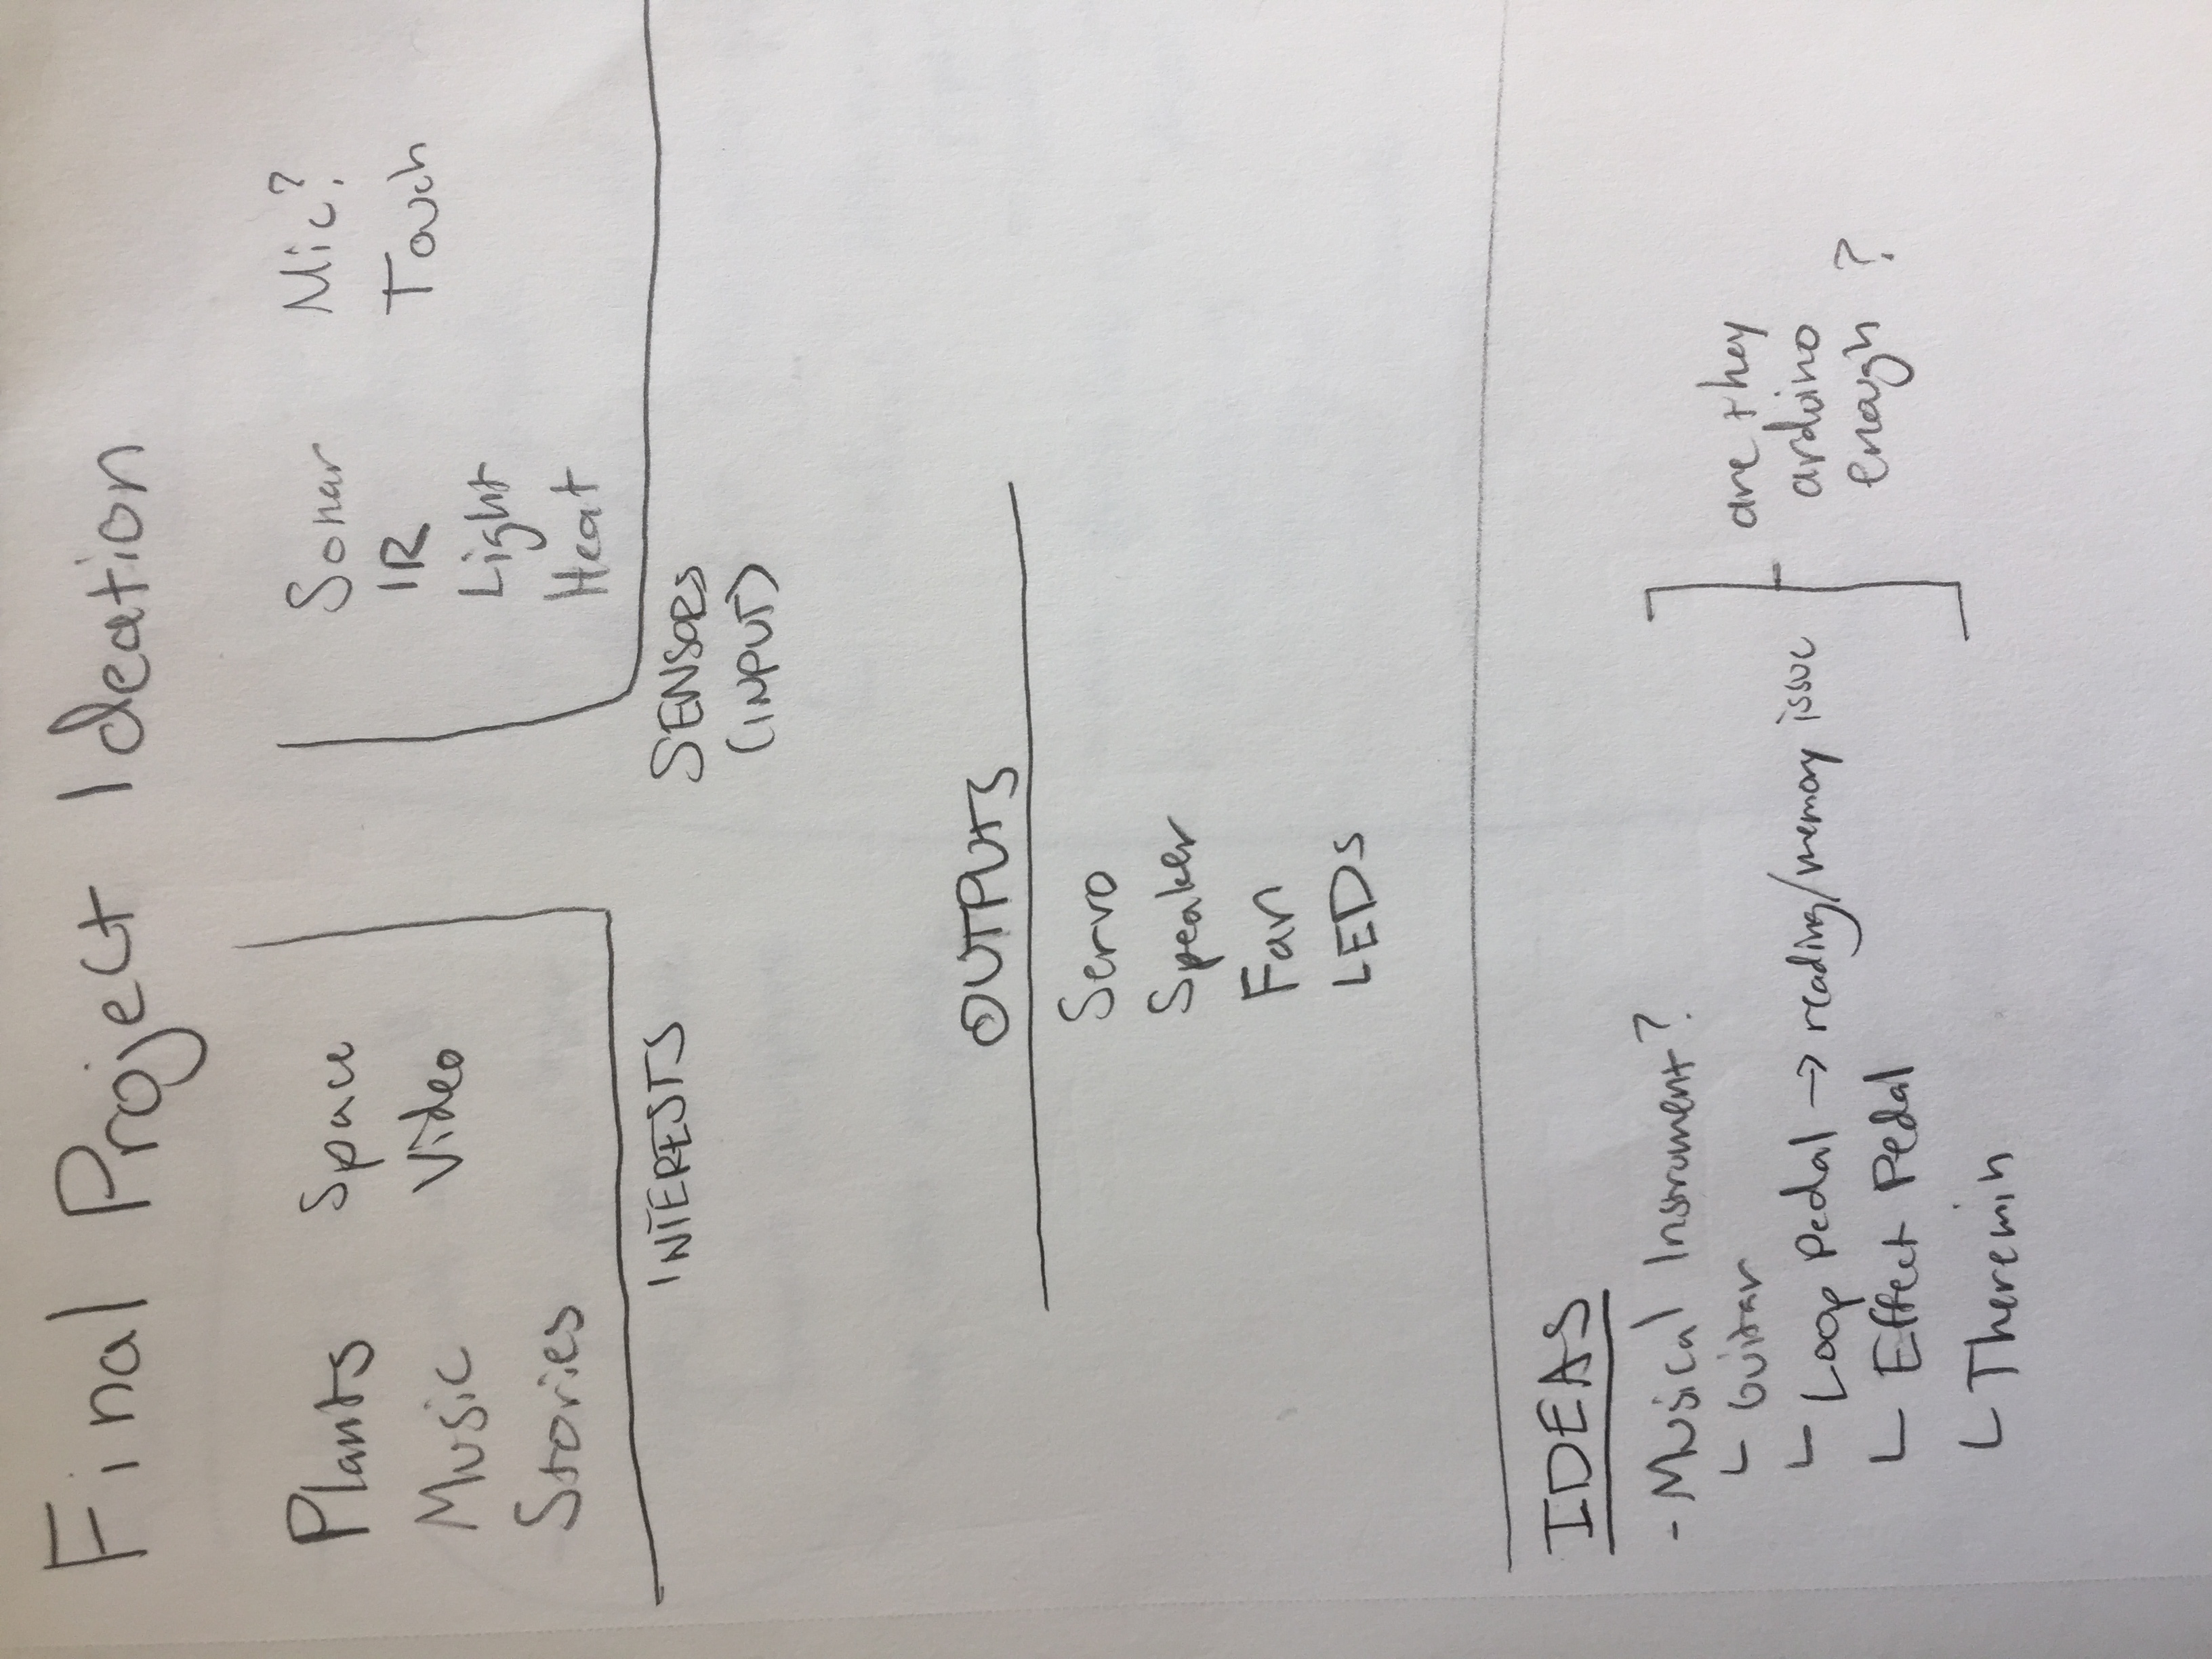 Final Project Ideation
Plants Space
Music Video
Stories
INTERESTS
Sonar Mic?
IR Touch
Light
Heat
SENSORS
(INPUT)
OUTPUTS
Servo
Speaker
Fan
LEDs
IDEAS
- Musical Instrument?
└ Guitar
└ Loop Pedal → reading/memory issue
└ Effect Pedal
└ Theremin
are they
arduino
enough ?